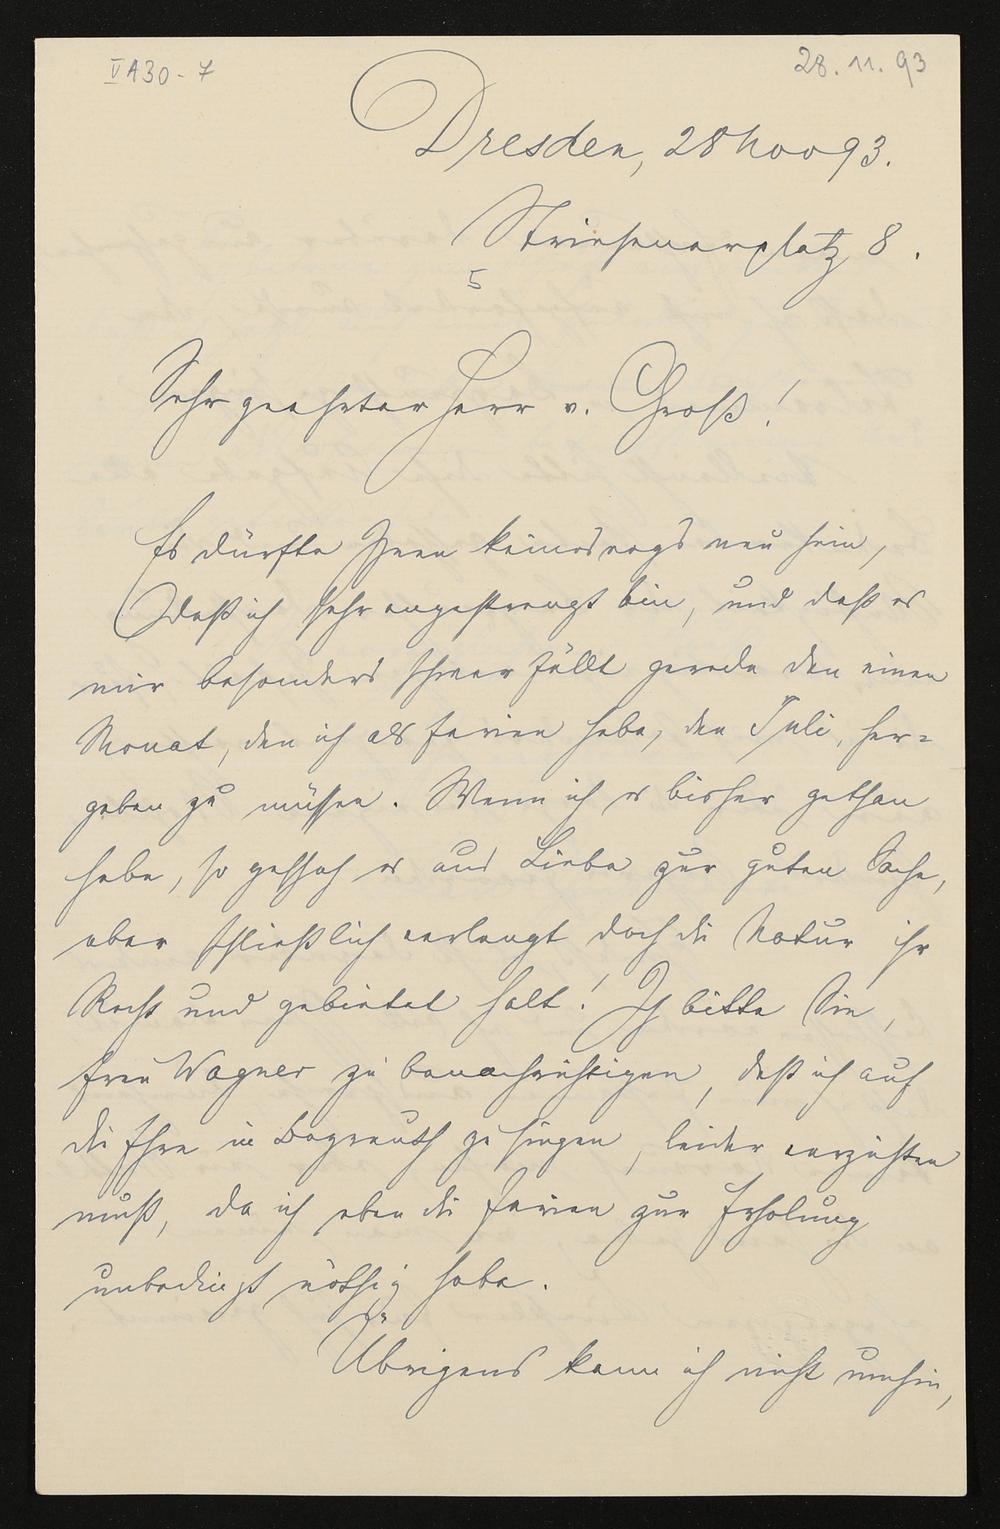 VA30-7
28.11.93
Dresden, 28 Nov 93.
Striesenerplatz 8.
5
Sehr geehrter Herr v. Groß!
Es dürfte Ihnen keineswegs neu sein,
daß ich sehr angestrengt bin, und daß es
mir besonders schwer fällt gerade den einen
Monat, den ich als Ferien habe, den Juli, her=
geben zu müssen. Wenn ich es bisher gethan
habe, so geschah es aus Liebe zur guten Sache,
aber schließlich verlangt doch die Natur ihr
Recht und gebietet halt! Ich bitte Sie,
Frau Wagner zu benachrichtigen, daß ich auf
die Ehre in Bayreuth zu singen, leider verzichten
muß, da ich eben die Ferien zur Erholung
unbedingt nöthig habe.
Übrigens kann ich nicht umhin,